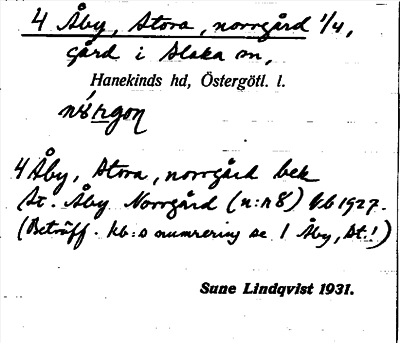 4 Åby, Stora, norrgård 1/4,
gård i Slaka sn,
Hanekinds hd, Östergötl. l.
4 Åby, Stora, norrgård bek
St. Åby Norrgård (n:r 8) kb 1927.
(Beträff. kb:s numrering se 1 Åby, St.!)
Sune Lindqvist 1931.